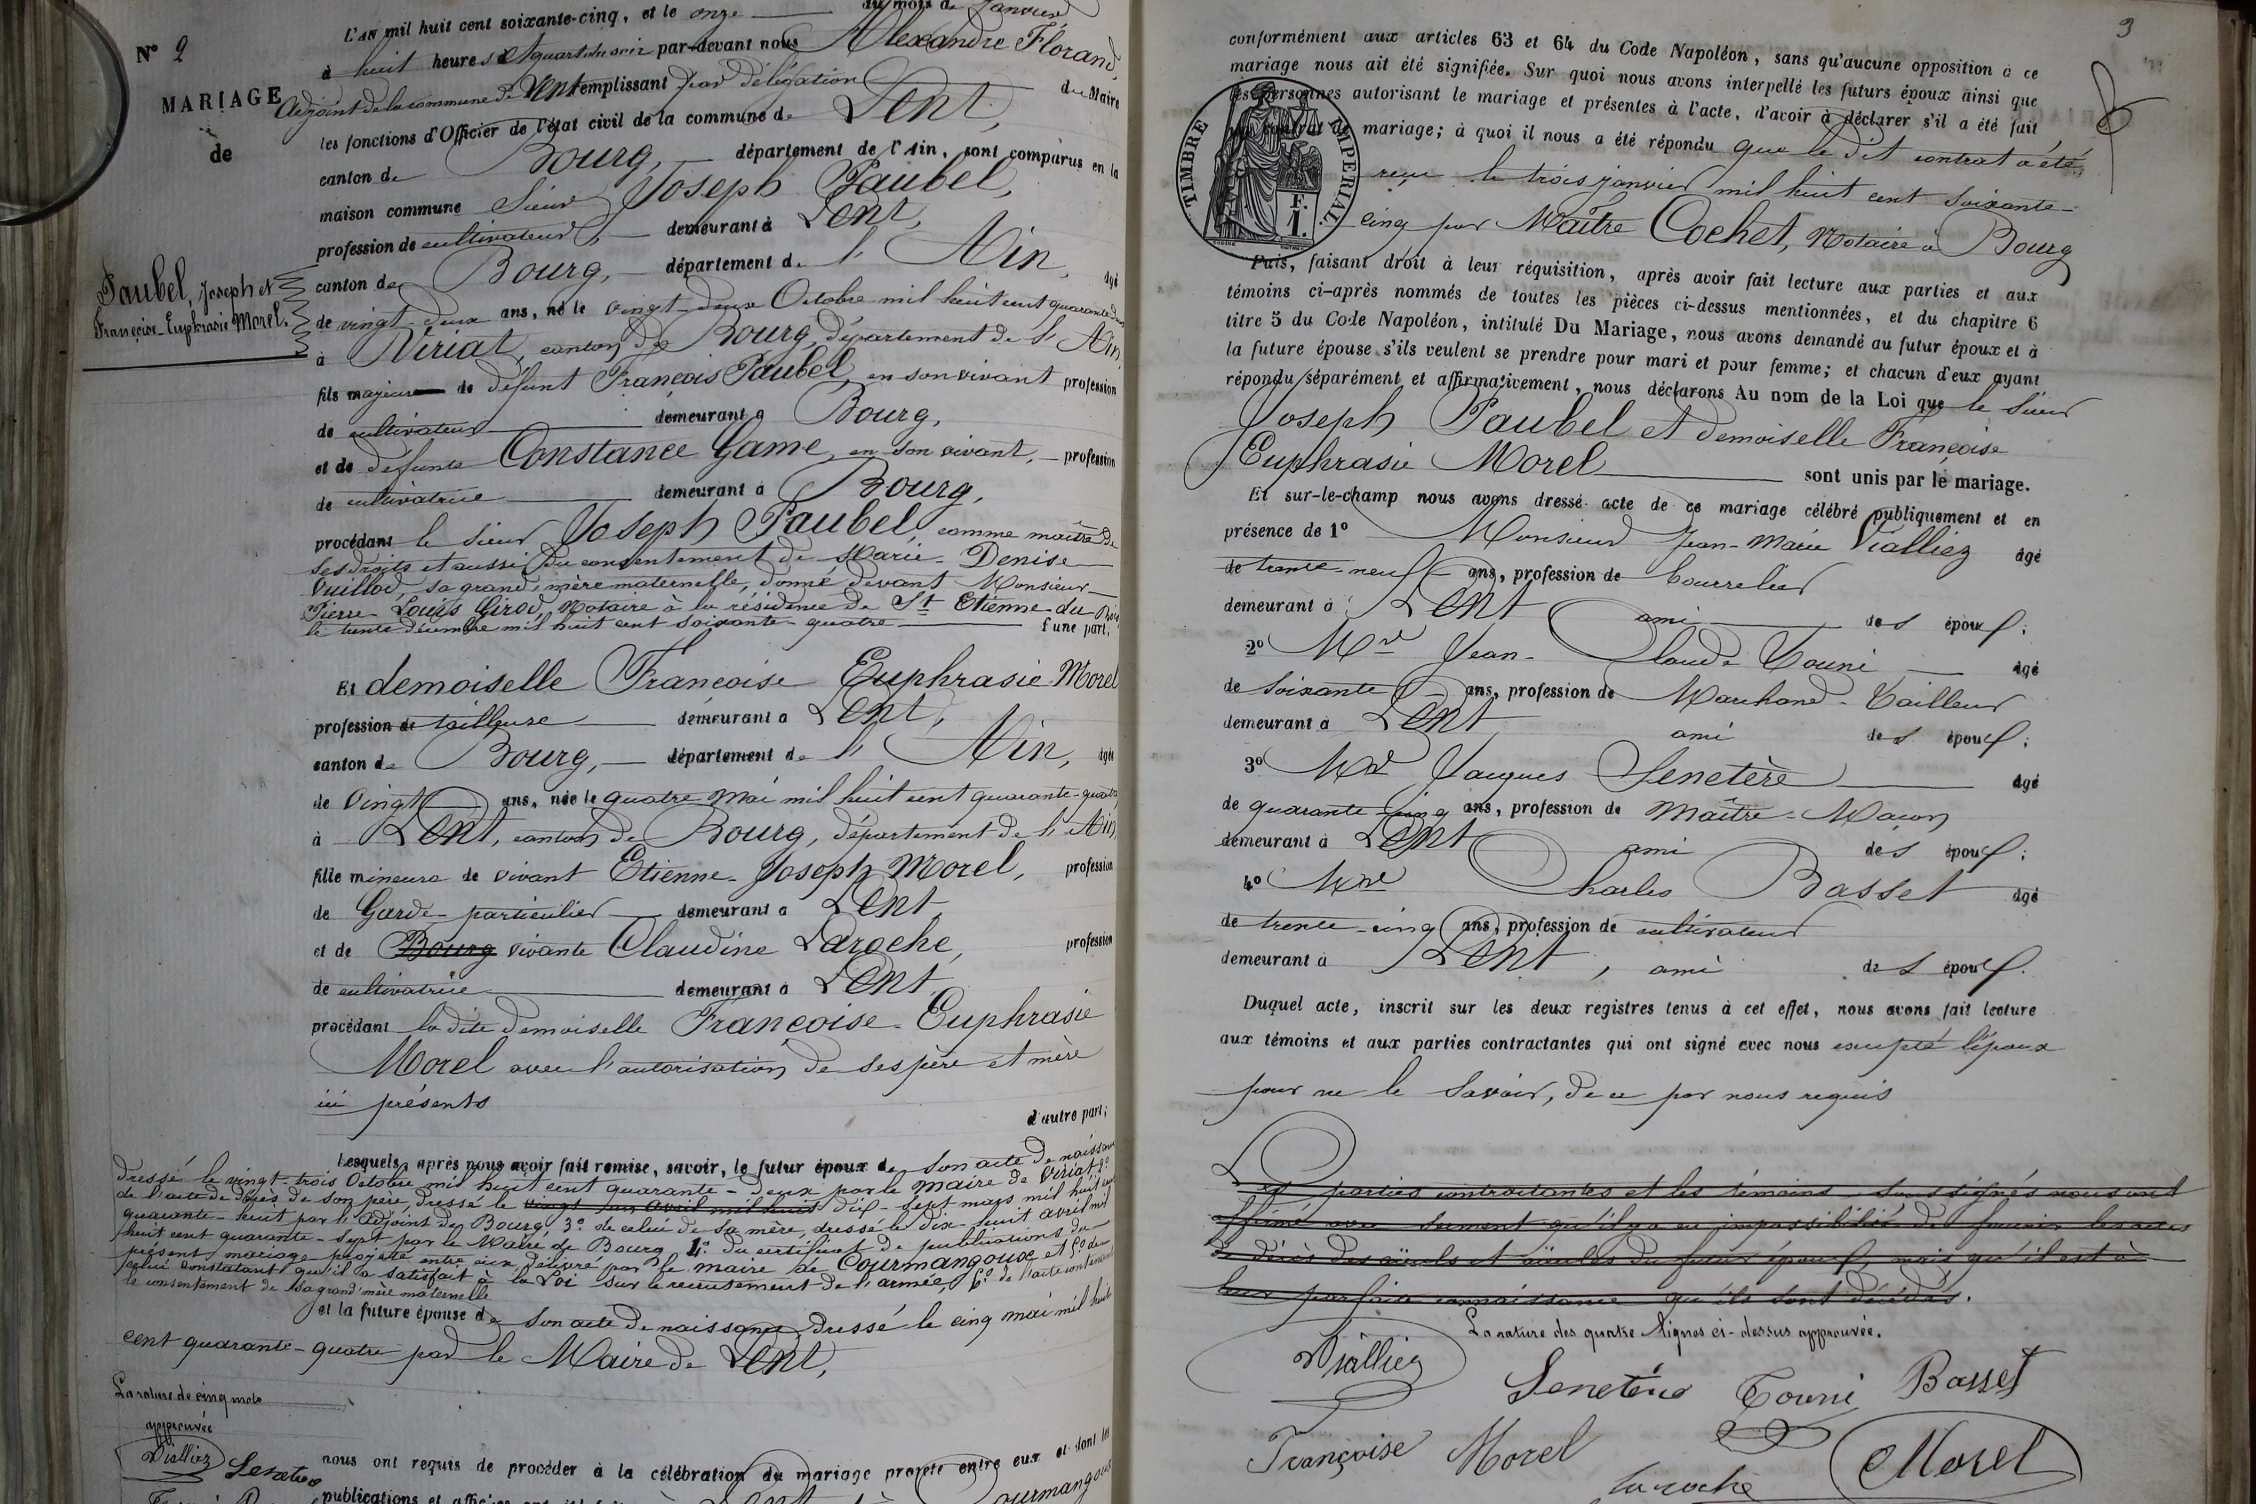 N° 2
MARIAGE
de
Paubel, Joseph et
Françoise-Euphrasie Morel.
L'an mil huit cent soixante-cinq, et le onze du mois de Janvier
à huit heures et quart du soir par-devant nous Alexandre Florand,
adjoint de la commune de Lent remplissant par délégation du Maire
les fonctions d'Officier de l'état civil de la commune de Lent,
canton de Bourg, département de l'Ain, sont comparus en la
maison commune Sieur Joseph Paubel,
profession de cultivateur, demeurant à Lent,
canton de Bourg, département de l'Ain, âgé
de vingt-deux ans, né le vingt-deux Octobre mil huit cent quarante deux
à Viriat, canton de Bourg, département de l'Ain,
fils majeur de défunt François Paubel, en son vivant profession
de cultivateur demeurant à Bourg,
et de défunte Constance Game, en son vivant, profession
de cultivatrice demeurant à Bourg,
procédant le sieur Joseph Paubel comme maître de
ses droits et aussi du consentement de Marie-Denise
Vuillod, sa grand'mère maternelle, donné devant Monsieur
Pierre-Louis Girod, Notaire à la résidence de St Etienne-du Bois
le trente décembre mil huit cent soixante-quatre d'une part;
Et demoiselle Françoise Euphrasie Morel
profession de tailleuse demeurant à Lent,
canton de Bourg, département de l'Ain, âgée
de Vingt ans, née le quatre Mai mil huit cent quarante-quatre
à Lent, canton de Bourg, département de l'Ain,
fille mineure de vivant Etienne-Joseph Morel, profession
de Garde-particulier demeurant à Lent
et de Bourg vivante Claudine Laroche, profession
de cultivatrice demeurant à Lent
procédant la dite demoiselle Françoise-Euphrasie
Morel avec l'autorisation de ses père et mère
ici présents
d'autre part;
Lesquels, après nous avoir fait remise, savoir, le futur époux de son acte de naissance
dressé le vingt-trois Octobre mil huit cent quarante-deux par le maire de Viriat 2°
de l'acte de décès de son père, dressé le vingt un avril mil huit dix-sept mars mil huit cent
quarante-huit par l'adjoint de Bourg, 3° de celui de sa mère, dressé le dix-huit avril mil
huit cent quarante-sept par le Maire de Bourg 4° du certificat de publications du
présent mariage projeté entre eux délivré par le maire de Courmangoux et 5° de
celui constatant qu'il a satisfait à la Loi sur le recrutement de l'armée, 6° de l'acte contenant
le consentement de sa grand'mère maternelle
et la future épouse de son acte de naissance dressé le cinq mai mil huit
cent quarante-quatre par le Maire de Lent,
La rature de cinq mots
approuvée
Vialliez Senetère
nous ont requis de procéder à la célébration du mariage projeté entre eux et dont les
publications et
3
conformément aux articles 63 et 64 du Code Napoléon, sans qu'aucune opposition à ce
mariage nous ait été signifiée. Sur quoi nous avons interpellé les futurs époux ainsi que
les personnes autorisant le mariage et présentes à l'acte, d'avoir à déclarer s'il a été fait
un contrat de mariage; à quoi il nous a été répondu que le dit contrat a été
TIMBRE IMPERIAL
F.
1.
reçu le trois janvier mil huit cent soixante-
cinq par Maître Cochet, Notaire à Bourg
Puis, faisant droit à leur réquisition, après avoir fait lecture aux parties et aux
témoins ci-après nommés de toutes les pièces ci-dessus mentionnées, et du chapitre 6
titre 5 du Code Napoléon, intitulé Du Mariage, nous avons demandé au futur époux et à
la future épouse s'ils veulent se prendre pour mari et pour femme; et chacun d'eux ayant
répondu séparément et affirmativement, nous déclarons Au nom de la Loi que le sieur
Joseph Paubel et demoiselle Françoise
Euphrasie Morel sont unis par le mariage.
Et sur-le-champ nous avons dressé acte de ce mariage célébré publiquement et en
présence de 1° Monsieur Jean-Marie Vialliez âgé
de trente-neuf ans, profession de bourrelier
demeurant à Lent ami des époux;
2° Mr Jean-Claude Tourni âgé
de soixante ans, profession de Marchand-Tailleur
demeurant à Lent ami des époux;
3° Mr Jacques Senetère âgé
de quarante-cinq ans, profession de Maître-Maçon
demeurant à Lent ami des époux;
4° Mr Charles Basset âgé
de trente-cinq ans, profession de cultivateur
demeurant à Lent, ami des époux.
Duquel acte, inscrit sur les deux registres tenus à cet effet, nous avons fait lecture
aux témoins et aux parties contractantes qui ont signé avec nous excepté l'époux
pour ne le savoir, de ce par nous requis
Les parties contractantes et les témoins soussignés nous ont
affirmé avec serment qu'il y a eu impossibilité de fournir les actes
de décès des aïeuls et aïeules du futur époux, mais qu'il est à
leur parfaite connaissance qu'ils sont décédés.
La rature des quatre lignes ci-dessus approuvée.
Vialliez
Senetère Tourni Basset
Françoise Morel
Laroche
Morel